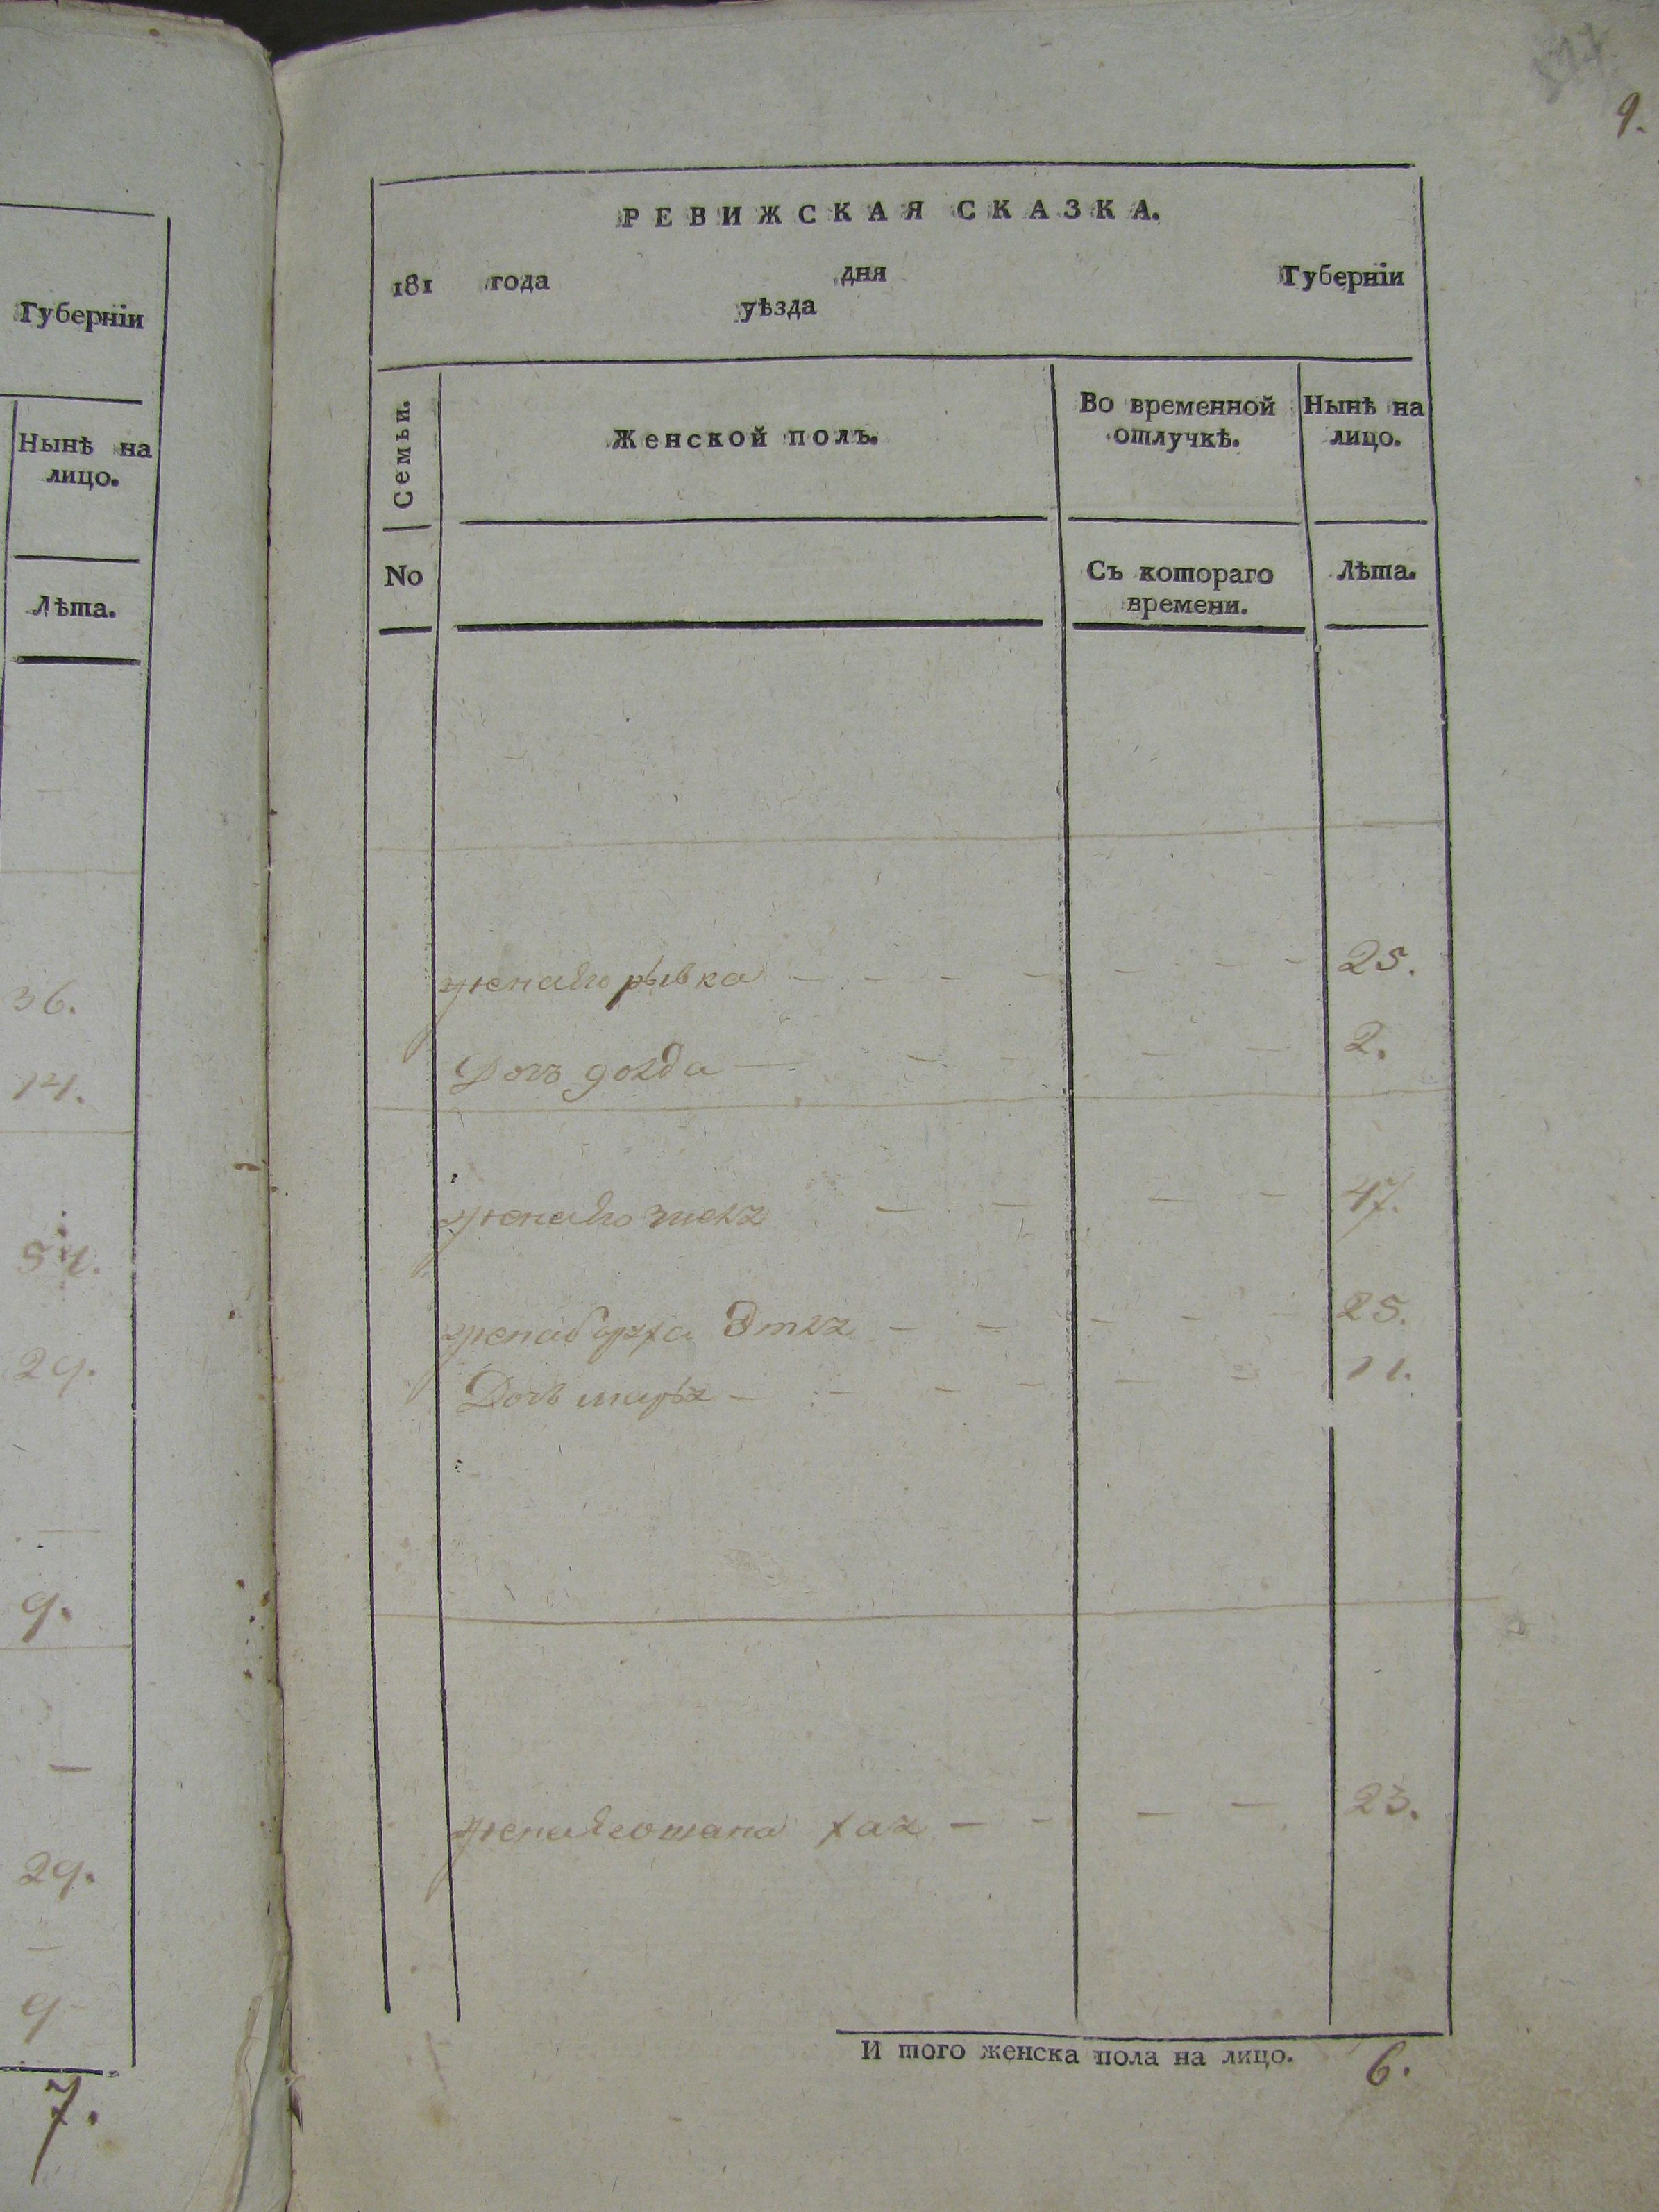 Губерніи
Нынѣ на
лицо.
Лѣта.
36.
14.
54.
29.
9.
29.
9
7.
9.
РЕВИЖСКАЯ СКАЗКА.
181 года дня Губерніи
уѣзда
Семьи. Женской полъ. Во временной Нынѣ на
отлучкѣ. лицо.
No Съ котораго Лѣта.
времени.
жена его рывка 25.
Дочь голда 2.
жена его 47.
жена Этля 25.
Дочь марья 11.
жена его хая 23.
И того женска пола на лицо. 6.